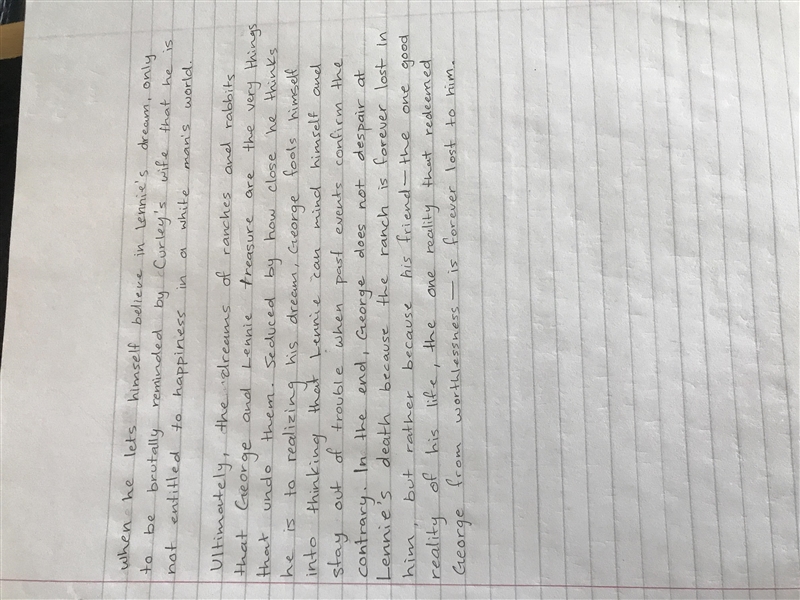 when he lets himself believe in Lennie's dream, only
to be brutally reminded by Curley's wife that he is
not entitled to happiness in a white man's world.
Ultimately, the dreams of ranches and rabbits
that George and Lennie treasure are the very things
that undo them. Seduced by how close he thinks
he is to realizing his dream, George fools himself
into thinking that Lennie can mind himself and
stay out of trouble when past events confirm the
contrary. In the end, George does not despair at
Lennie's death because the ranch is forever lost In
him, but rather because his friend—the one good
reality of his life, the one reality that redeemed
George from worthlessness—is forever lost to him.